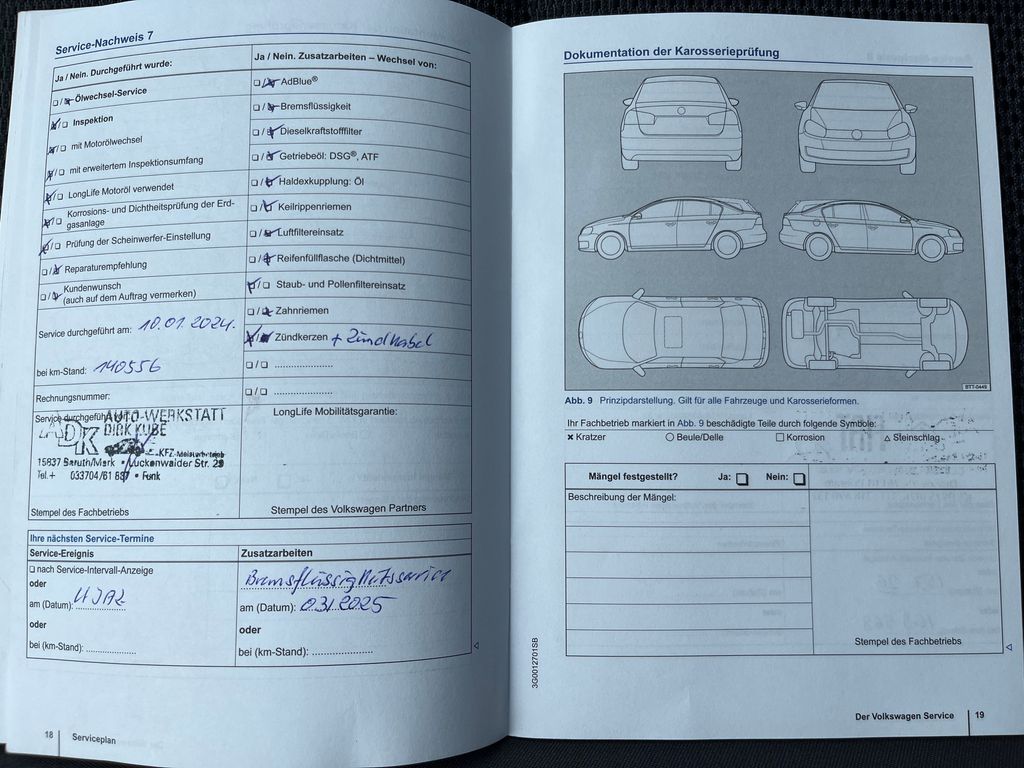 Service-Nachweis 7
Ja / Nein. Durchgeführt wurde:
Ölwechsel-Service
Inspektion
mit Motorölwechsel
mit erweitertem Inspektionsumfang
LongLife Motoröl verwendet
Korrosions- und Dichtheitsprüfung der Erd-
gasanlage
Prüfung der Scheinwerfer-Einstellung
Reparaturempfehlung
Kundenwunsch
(auch auf dem Auftrag vermerken)
Service durchgeführt am: 10.01.2024.
bei km-Stand: 140556
Rechnungsnummer:
Service durchgeführt
AUTO-WERKSTATT
DIRK KUBE
ADK
KFZ-Meisterbetrieb
15837 Baruth/Mark • Luckenwalder Str. 29
Tel. 033704/61 887 • Funk
Stempel des Fachbetriebs
Ja / Nein. Zusatzarbeiten – Wechsel von:
AdBlue®
Bremsflüssigkeit
Dieselkraftstofffilter
Getriebeöl: DSG®, ATF
Haldexkupplung: Öl
Keilrippenriemen
Luftfiltereinsatz
Reifenfüllflasche (Dichtmittel)
Staub- und Pollenfiltereinsatz
Zahnriemen
Zündkerzen + Zündkabel
LongLife Mobilitätsgarantie:
Stempel des Volkswagen Partners
Ihre nächsten Service-Termine
Service-Ereignis
nach Service-Intervall-Anzeige
oder
am (Datum):
oder
bei (km-Stand):
Zusatzarbeiten
Bremsflüssigkeitsservice
am (Datum): 03.2025
oder
bei (km-Stand):
18 Serviceplan
Dokumentation der Karosserieprüfung
BTT-0449
Abb. 9 Prinzipdarstellung. Gilt für alle Fahrzeuge und Karosserieformen.
Ihr Fachbetrieb markiert in Abb. 9 beschädigte Teile durch folgende Symbole:
Kratzer Beule/Delle Korrosion Steinschlag
Mängel festgestellt? Ja: Nein:
Beschreibung der Mängel:
Stempel des Fachbetriebs
3G0012701SB
Der Volkswagen Service 19